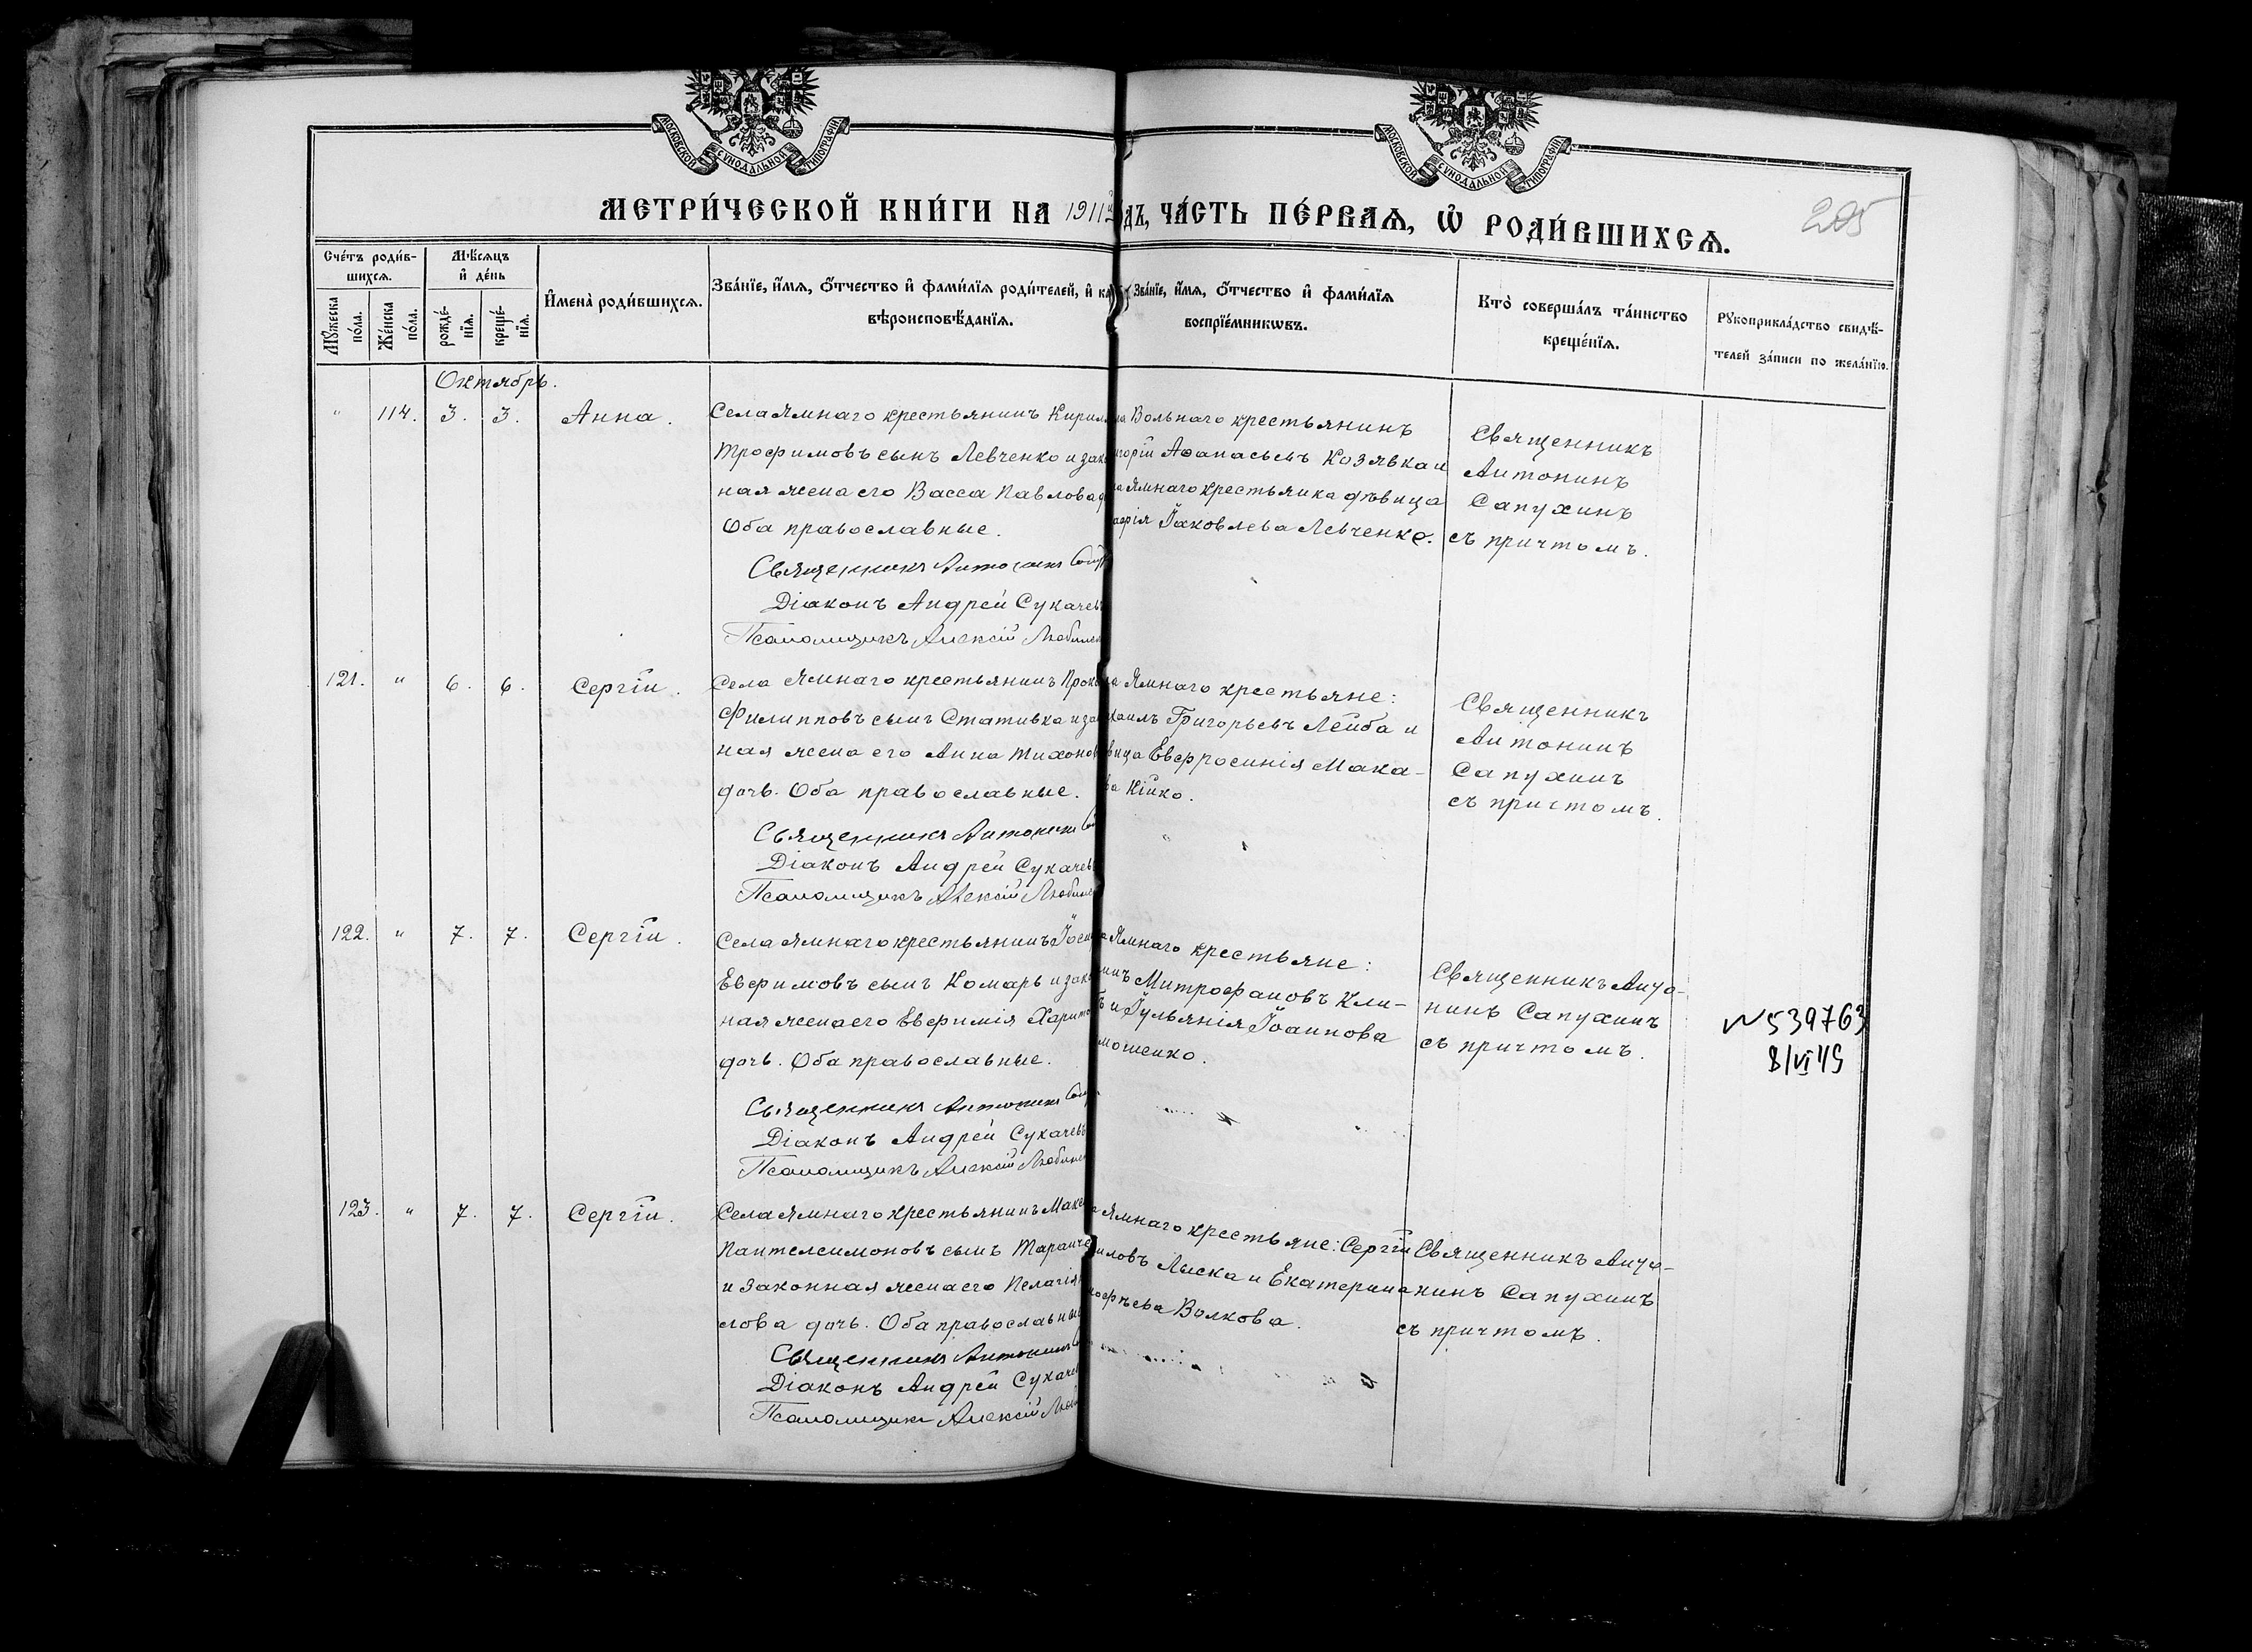 МОСКОВСКОЙ СѴНОДАЛЬНОЙ ТИПОГРАФІИ
МОСКОВСКОЙ СѴНОДАЛЬНОЙ ТИПОГРАФІИ
МЕТРИ́ЧЕСКОЙ КНИ́ГИ НА 1911 ДЪ, ЧА́СТЬ ПЕ́РВАѦ, Ѡ҆ РОДИ́ВШИХСѦ.
205
Сче́тъ роди́в-
шихсѧ.
Мꙋжеска по́ла.
Же́нска по́ла.
Мѣ́сѧцъ и҆ де́нь
рожде́-
нїѧ.
креще́-
нїѧ.
И҆мена̀ роди́вшихсѧ.
Зва́нїе, и҆́мѧ, ѻ҆́тчество и҆ фами́лїѧ роди́телей, и҆ ка
вѣроисповѣ́данїѧ.
Зва́нїе, и҆́мѧ, ѻ҆́тчество и҆ фами́лїѧ
воспрїе́мникѡвъ.
Кто̀ соверша́лъ та́инство
креще́нїѧ.
Рꙋкоприкла́дство свидѣ́-
телей за́писи по жела́нїю.
Октябрь.
" 114. 3. 3. Анна.
Села Ямнаго крестьянинъ Кирил
Трофимовъ сынъ Левченко и зако
ная жена его Васса Павлова д
Оба православные.
Священникъ Антонинъ Сапу
Діаконъ Андрей Сукачевъ
Псаломщикъ Алексій Любиме
ла Вольнаго крестьянинъ
игорій Аѳанасьевъ Козявка и
ла Ямнаго крестьянка дѣвица
арія Іаковлева Левченко.
Священникъ
Антонинъ
Сапухинъ
съ причтомъ.
121. " 6. 6. Сергій.
Села Ямнаго крестьянинъ Прок
Филипповъ сынъ Стативка и за
ная жена его Анна Тихонов
дочь. Оба православные.
Священникъ Антонинъ Са
Діаконъ Андрей Сукачев
Псаломщикъ Алексій Любиме
ла Ямнаго крестьяне:
хаилъ Григорьевъ Лейба и
вица Евфросинія Мака-
ва Кійко.
Священникъ
Антонинъ
Сапухинъ
съ причтомъ.
122. " 7. 7. Сергій.
Села Ямнаго крестьянинъ Іоси
Евфимовъ сынъ Комарь и зако
ная жена его Евфимія Харито
дочь. Оба православные.
Священникъ Антонинъ Сапу
Діаконъ Андрей Сукачевъ
Псаломщикъ Алексій Любиме
а Ямнаго крестьяне:
инъ Митрофановъ Кли-
ъ и Іульянія Іоаннова
мошенко.
Священникъ Анто-
нинъ Сапухинъ
съ причтомъ.
№539763
8/VI 49
123. " 7. 7. Сергій.
Села Ямнаго крестьянинъ Макс
Пантелеимоновъ сынъ Таранче
и законная жена его Пелагія
лова дочь. Оба православные
Священникъ Антонинъ
Діаконъ Андрей Сукаче
Псаломщикъ Алексій Люб
а Ямнаго крестьяне: Сергій
иловъ Лыска и Екатерина
моѳѣева Волкова.
Священникъ Анто-
нинъ Сапухинъ
съ причтомъ.